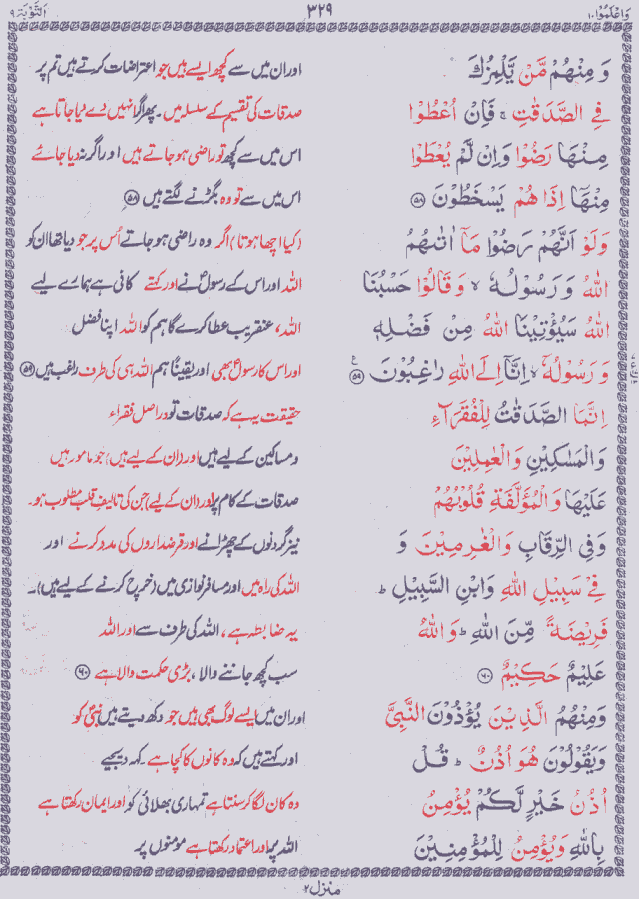 وَاعْلَمُوْا ١٠ ٣٢٩ اَلتَّوْبَة ٩
وَ مِنْهُمْ مَّنْ يَّلْمِزُكَ اور ان میں سے کچھ ایسے ہیں جو اعتراضات کرتے ہیں تم پر
فِي الصَّدَقٰتِ ۚ فَاِنْ اُعْطُوْا صدقات کی تقسیم کے سلسلہ میں۔ پھر اگر انہیں دے دیا جاتا ہے
مِنْهَا رَضُوْا وَاِنْ لَّمْ يُعْطَوْا اس میں سے کچھ تو راضی ہو جاتے ہیں اور اگر نہ دیا جائے
مِنْهَاۤ اِذَا هُمْ يَسْخَطُوْنَ ۝٥٨ اس میں سے تو وہ بگڑنے لگتے ہیں ۝٥٨
وَلَوْ اَنَّهُمْ رَضُوْا مَاۤ اٰتٰىهُمُ (کیا اچھا ہوتا) اگر وہ راضی ہو جاتے اُس پر جو دیا تھا ان کو
اللّٰهُ وَ رَسُوْلُهٗ ۙ وَ قَالُوْا حَسْبُنَا اللہ اور اس کے رسولؐ نے اور کہتے کافی ہے ہمارے لیے
اللّٰهُ سَيُؤْتِيْنَا اللّٰهُ مِنْ فَضْلِهٖ اللہ، عنقریب عطا کرے گا ہم کو اللہ اپنا فضل
وَ رَسُوْلُهٗۤ ۙ اِنَّاۤ اِلَى اللّٰهِ رٰغِبُوْنَ ۝٥٩ اور اس کا رسولؐ بھی اور یقیناً ہم اللہ ہی کی طرف راغب ہیں ۝٥٩
اِنَّمَا الصَّدَقٰتُ لِلْفُقَرَآءِ حقیقت یہ ہے کہ صدقات تو دراصل فقراء
وَالْمَسٰكِيْنِ وَالْعٰمِلِيْنَ و مساکین کے لیے ہیں اور (ان کے لیے ہیں) جو مامور ہیں
عَلَيْهَا وَالْمُؤَلَّفَةِ قُلُوْبُهُمْ صدقات کے کام پر اور (ان کے لیے) جن کی تالیفِ قلب مطلوب ہو۔
وَفِي الرِّقَابِ وَالْغٰرِمِيْنَ وَ نیز گردنوں کے چھڑانے اور قرضداروں کی مدد کرنے اور
فِيْ سَبِيْلِ اللّٰهِ وَابْنِ السَّبِيْلِ ؕ اللہ کی راہ میں اور مسافر نوازی میں (خرچ کرنے کے لیے ہیں)۔
فَرِيْضَةً مِّنَ اللّٰهِ ؕ وَاللّٰهُ یہ ضابطہ ہے، اللہ کی طرف سے اور اللہ
عَلِيْمٌ حَكِيْمٌ ۝٦٠ سب کچھ جاننے والا، بڑی حکمت والا ہے ۝٦٠
وَمِنْهُمُ الَّذِيْنَ يُؤْذُوْنَ النَّبِيَّ اور ان میں ایسے لوگ بھی ہیں جو دکھ دیتے ہیں نبیؐ کو
وَيَقُوْلُوْنَ هُوَ اُذُنٌ ؕ قُلْ اور کہتے ہیں کہ وہ کانوں کا کچا ہے۔ کہہ دیجیے
اُذُنُ خَيْرٍ لَّكُمْ يُؤْمِنُ وہ کان لگا کر سنتا ہے تمہاری بھلائی کو اور ایمان رکھتا ہے
بِاللّٰهِ وَيُؤْمِنُ لِلْمُؤْمِنِيْنَ اللہ پر اور اعتماد رکھتا ہے مومنوں پر
منزل ٢